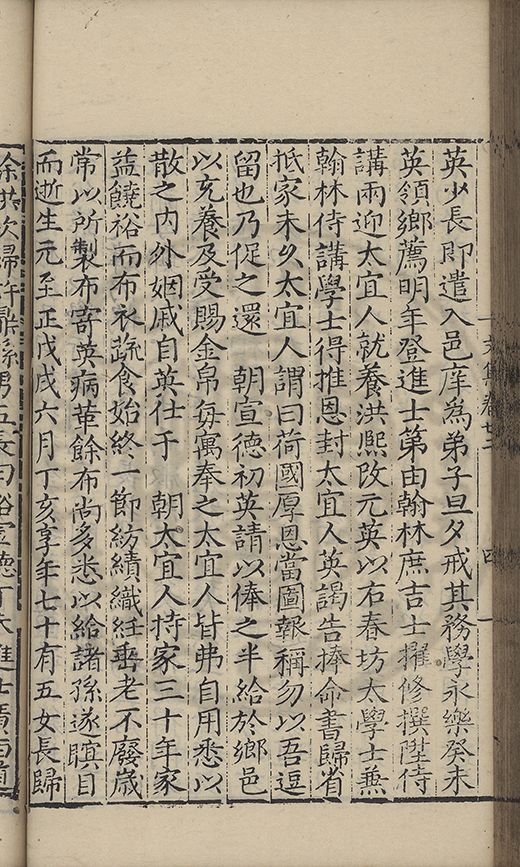 英少長即遣入邑庠為弟子旦夕戒其務學永樂癸未
英領鄉薦明年登進士第由翰林庶吉士擢修撰陞侍
講兩迎太宜人就養洪熙改元英以右春坊大學士兼
翰林侍講學士得推恩封太宜人英謁告捧命書歸省
抵家未乆太宜人謂曰荷國厚恩當圖報稱勿以吾逗
留也乃促之還 朝宣德初英請以俸之半給於鄉邑
以充養及受賜金帛每寓奉之太宜人皆弗自用悉以
散之内外姻戚自英仕于 朝太宜人持家三十年家
益饒裕而布衣蔬食始終一節紡績織絍垂老不廢歲
常以所製布寄英病革餘布尚多悉以給諸孫遂瞑目
而逝生元至正戊戌六月丁亥享年七十有五女長歸
余洪次歸許鼎孫男五長曰
文集卷廿二
四